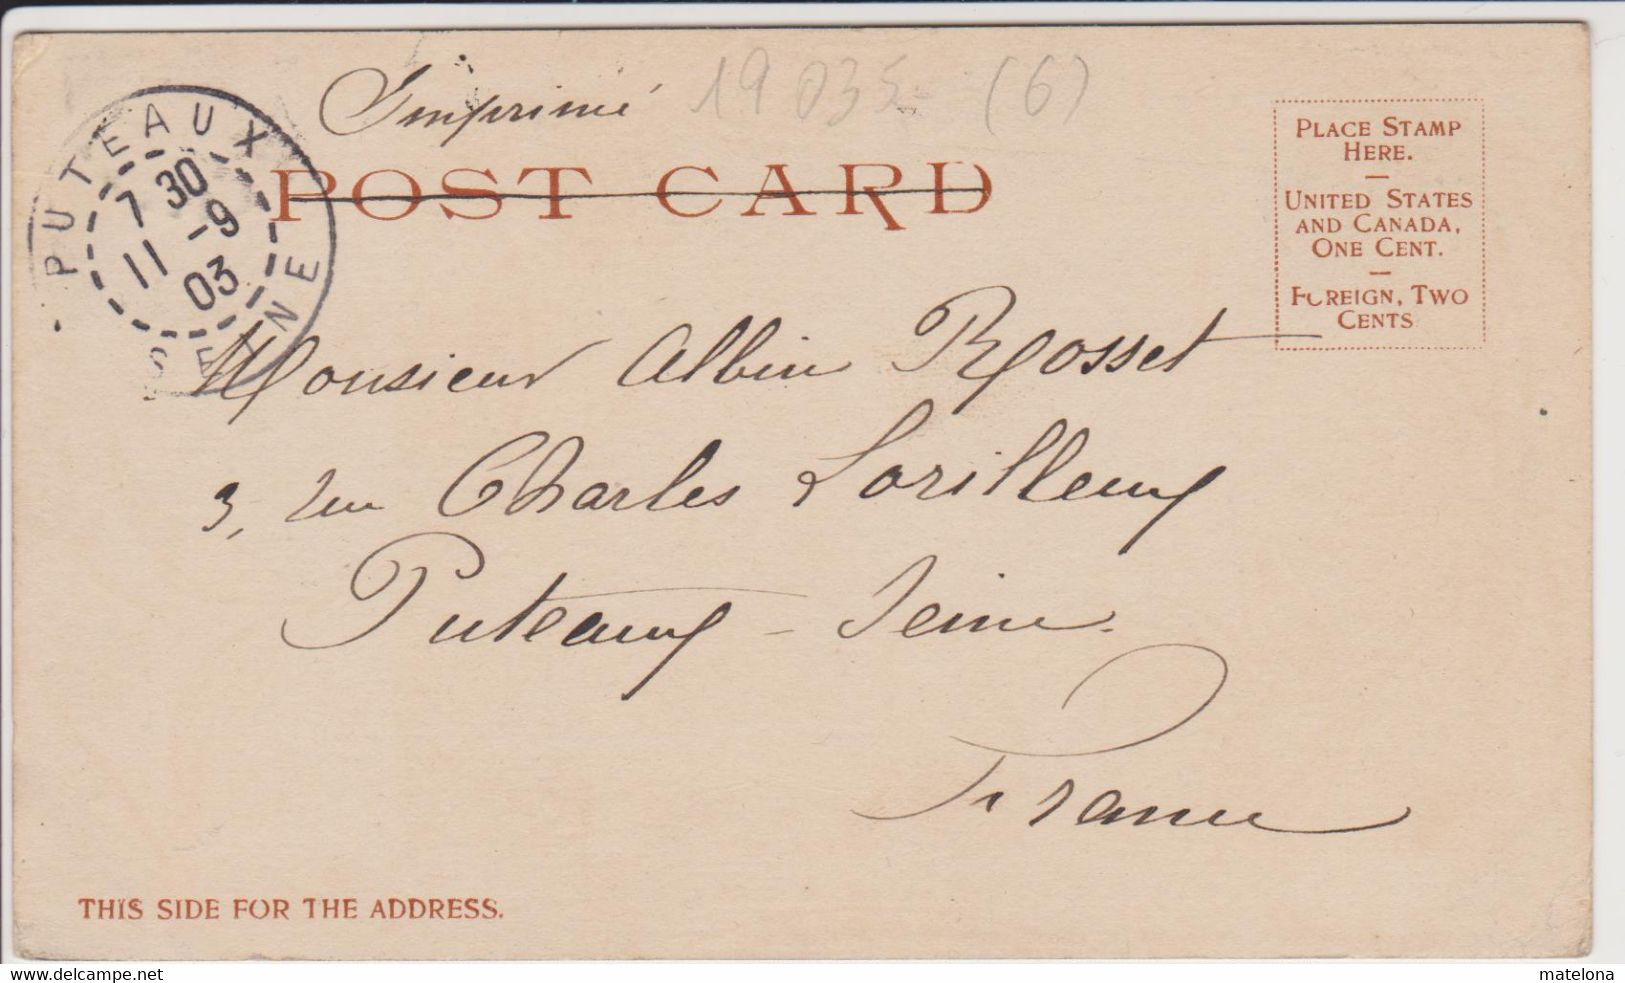 Imprimé 19035 (6)
POST CARD
PUTEAUX
7 30
11 -9
03
SEINE
PLACE STAMP
HERE.
UNITED STATES
AND CANADA,
ONE CENT.
FOREIGN, TWO
CENTS
Monsieur Albin Rosset
3, rue Charles Lorilleux
Puteaux - Seine.
France
THIS SIDE FOR THE ADDRESS.
www.delcampe.net
matelona